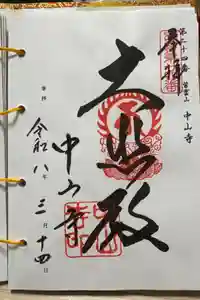 奉拝
第二十四番 紫雲山 中山寺
大悲殿
中山寺
令和八年三月十四日